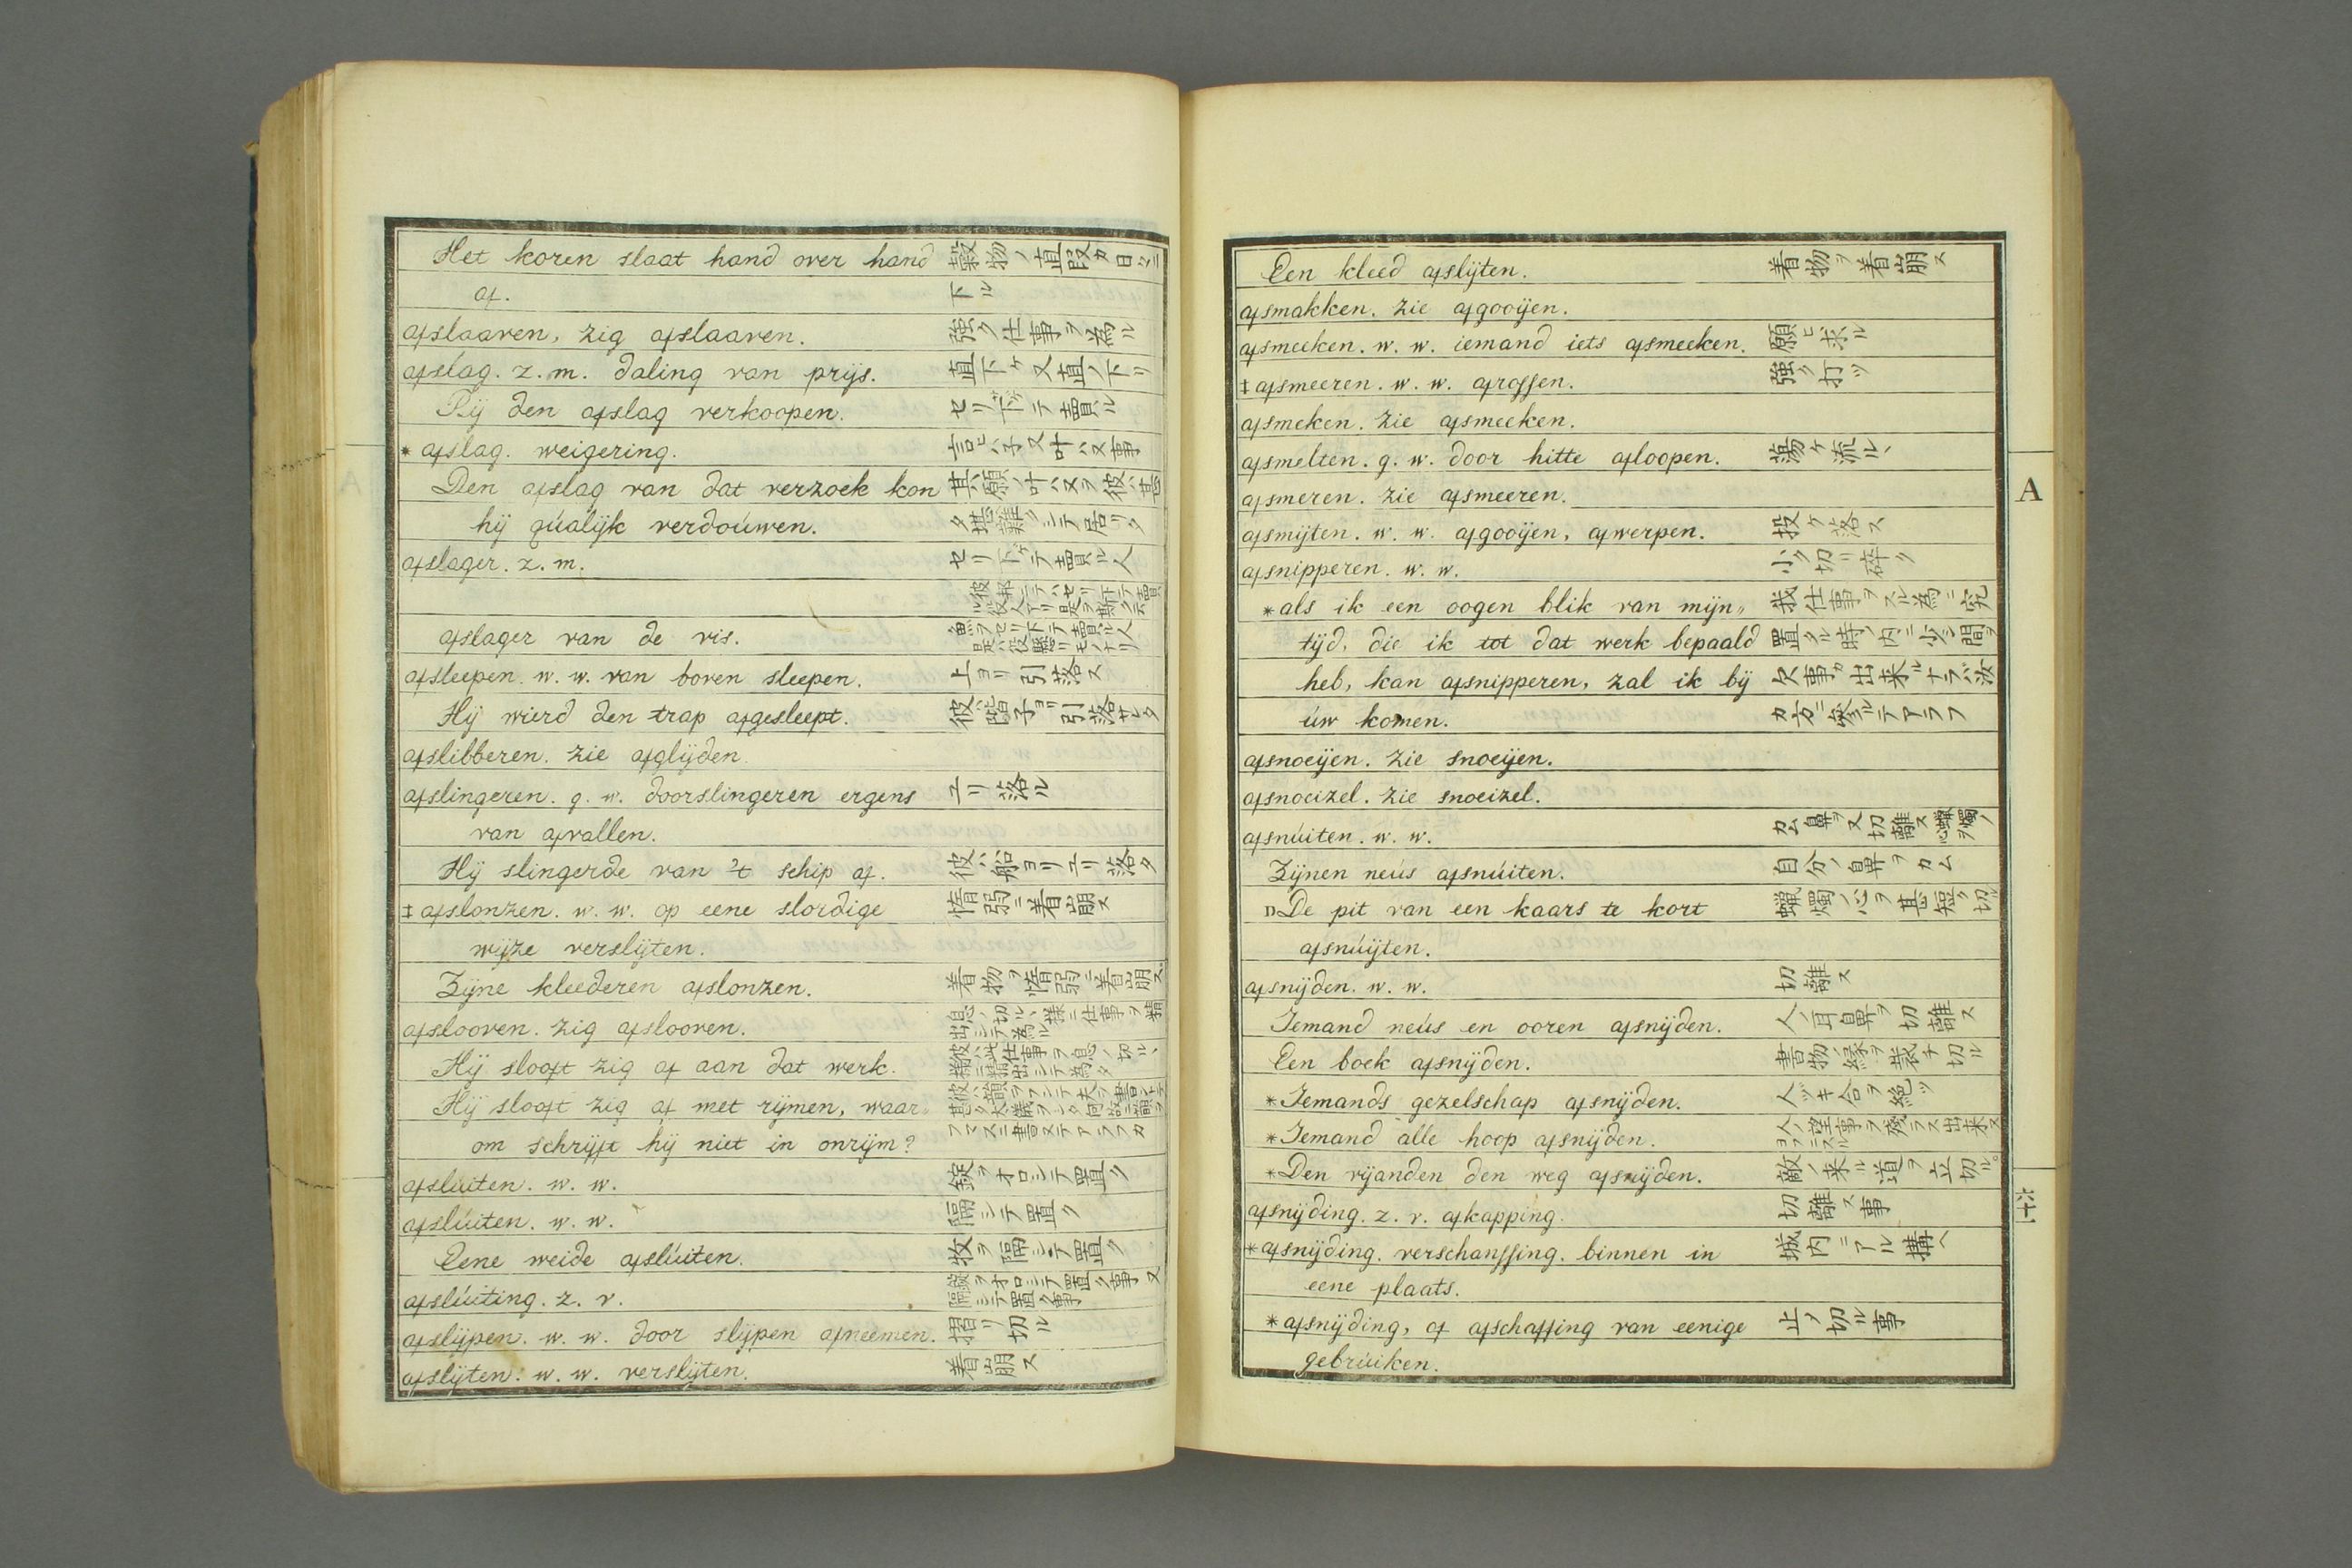 Het koren slaat hand over hand 穀物ノ直段カ日〻ニ
af. 下ル
afslaaven, zig afslaaven. 強ク仕事ヲ為ル
afslag. z. m. daling van prijs. 直下ケ又直ノ下リ
Bij den afslag verkoopen. セリ下ケテ賣ル
* afslag. weigering. 言ヒハ子又叶ハヌ事
Den afslag van dat verzoek kon 其願ノ叶ハヌヲ彼ハ甚
hij qúalijk verdoúwen. タ堪難クシテ居リタ
afslager. z. m. セリ下ケテ賣ル人
afslager van de vis. 魚ヲセリ下テ賣ル人
afsleepen. w. w. van boven sleepen. 上ヨリ引落ス
Hij wierd den trap afgesleept. 彼ハ階子ヨリ引落サレタ
afslibberen. zie afglijden.
afslingeren. g. w. doorslingeren ergens ユリ落ル
van afvallen.
Hij slingerde van 't schip af. 彼ハ船ヨリユリ落タ
‡ afslonzen. w. w. op eene slordige 惰弱ニ着崩ス
wijze verslijten.
Zijne kleederen afslonzen. 着物ヲ惰弱ニ着崩ス
afslooven. zig afslooven. 息ノ切ルヽ様ニ仕事ヲ精
出シテ為ル
Hij slooft zig af aan dat werk. 彼ハ此仕事ヲ息ノ切ルヽ
様ニ精出シテ為タ
Hij slooft zig af met rijmen, waar„
om schrijft hij niet in onrijm?
afsluiten. w. w. 錠ヲオロシテ置ク
afslúiten. w. w. 隔シテ置ク
Eene weide afslúiten. 牧ヲ隔シテ置ク
afslúiting. z. v. 錠ヲオロシテ置ク事又
隔シテ置ク事
afslijpen. w. w. door slijpen afneemen. 摺リ切ル
afslijten. w. w. verslijten. 着崩ス
Een kleed afslijten. 着物ヲ着崩ス
afsmakken. zie afgooijen.
afsmeeken. w. w. iemand iets afsmeeken. 願ヒ求ル
‡ afsmeeren. w. w. afrossen. 強ク打ツ
afsmeken. zie afsmeeken.
afsmelten. g. w. door hitte afloopen. 蕩ケ流ルヽ
afsmeren. zie afsmeeren.
A
afsmijten. w. w. afgooijen, afwerpen. 投ケ落ス
afsnipperen. w. w. 小ク切リ碎ク
* als ik een oogen blik van mijn„ 我仕事ヲスル為ニ究
tijd, die ik tot dat werk bepaald 置タル時ノ内ニ少シ間ヲ
heb, kan afsnipperen, zal ik bij 欠事カ出来ルナラバ汝
úw komen. カ方ニ参ルテアラフ
afsnoeijen. zie snoeijen.
afsnoeizel. zie snoeizel.
afsnúiten. w. w. カム鼻ヲ又切離ス蠟燭ノ心ヲ
Zijnen neús afsnúiten. 自分ノ鼻ヲカム
De pit van een kaars te kort 蠟燭ノ心ヲ甚短ク切ル
afsnúijten.
afsnijden. w. w. 切離ス
Iemand neús en ooren afsnijden. 人ノ耳鼻ヲ切離ス
Een boek afsnijden. 書物ノ縁ヲ裁チ切ル
* Iemands gezelschap afsnijden. 人ツキ合ヲ絶ツ
* Iemand alle hoop afsnijden. 人ノ望事ヲ残ラス出来ヌ
ヨフニスル
* Den vijanden den weg afsnijden. 敵ノ来ル道ヲ立切ル。
afsnijding. z. v. afkapping. 切離ス事
* afsnijding. verschanssing. binnen in 城内ニアル搆ヘ
eene plaats.
* afsnijding, of afschaffing van eenige 止ノ切ル事
gebrúiken.